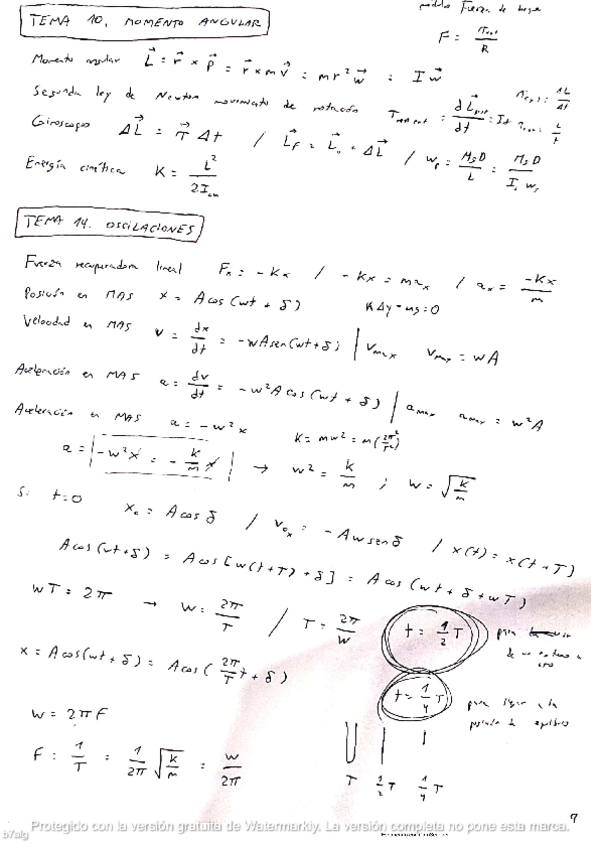 TEMA 10. MOMENTO ANGULAR
Fuerza de
F = / R
Momento angular L⃗ = r⃗ × p⃗ = r⃗ × m v⃗ = m r² w⃗ = I w⃗
Segunda ley de Newton movimiento de rotación = dL⃗ / dt
Giroscopo ΔL⃗ = τ⃗ Δt / L⃗F = L⃗o + ΔL⃗ / wp = MgD / L = MgD / Is ws
Energía cinética K = L² / 2Icm
TEMA 14. OSCILACIONES
Fuerza recuperadora lineal Fx = -Kx / -Kx = max / ax = -Kx / m
Posición en MAS x = A cos (wt + δ) KΔy - mg = 0
Velocidad en MAS v = dx/dt = -wA sen(wt + δ) | vmax vmax = wA
Aceleración en MAS a = dv/dt = -w²A cos (wt + δ) | amax amax = w²A
Aceleración en MAS a = -w²x K = mw² = m(2π²/T²)
a = | -w²x = - K/m x | → w² = K/m ; w = √K/m
Si t=0 x₀ = A cos δ / v₀x = -Aw sen δ / x(t) = x(t + T)
A cos (wt + δ) = A cos [w(t + T) + δ] = A cos (wt + δ + wT)
wT = 2π → w = 2π/T / T = 2π/w
t = 1/2 T para
de un extremo a
otro
x = A cos(wt + δ) = A cos ( 2π/T t + δ)
t = 1/4 T para llegar a la
posición de equilibrio
w = 2πF
F = 1/T = 1/2π √K/m = w/2π
T 1/2 T 1/4 T
9
Protegido con la versión gratuita de Watermarkly. La versión completa no pone esta marca.
b7alg